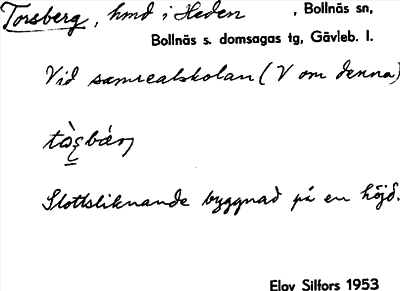 Torsberg, hmd i Heden , Bollnäs sn,
Bollnäs s. domsagas tg, Gävleb. l.
Vid samrealskolan (V om denna)
Slottsliknande byggnad på en höjd.
Eloy Silfors 1953